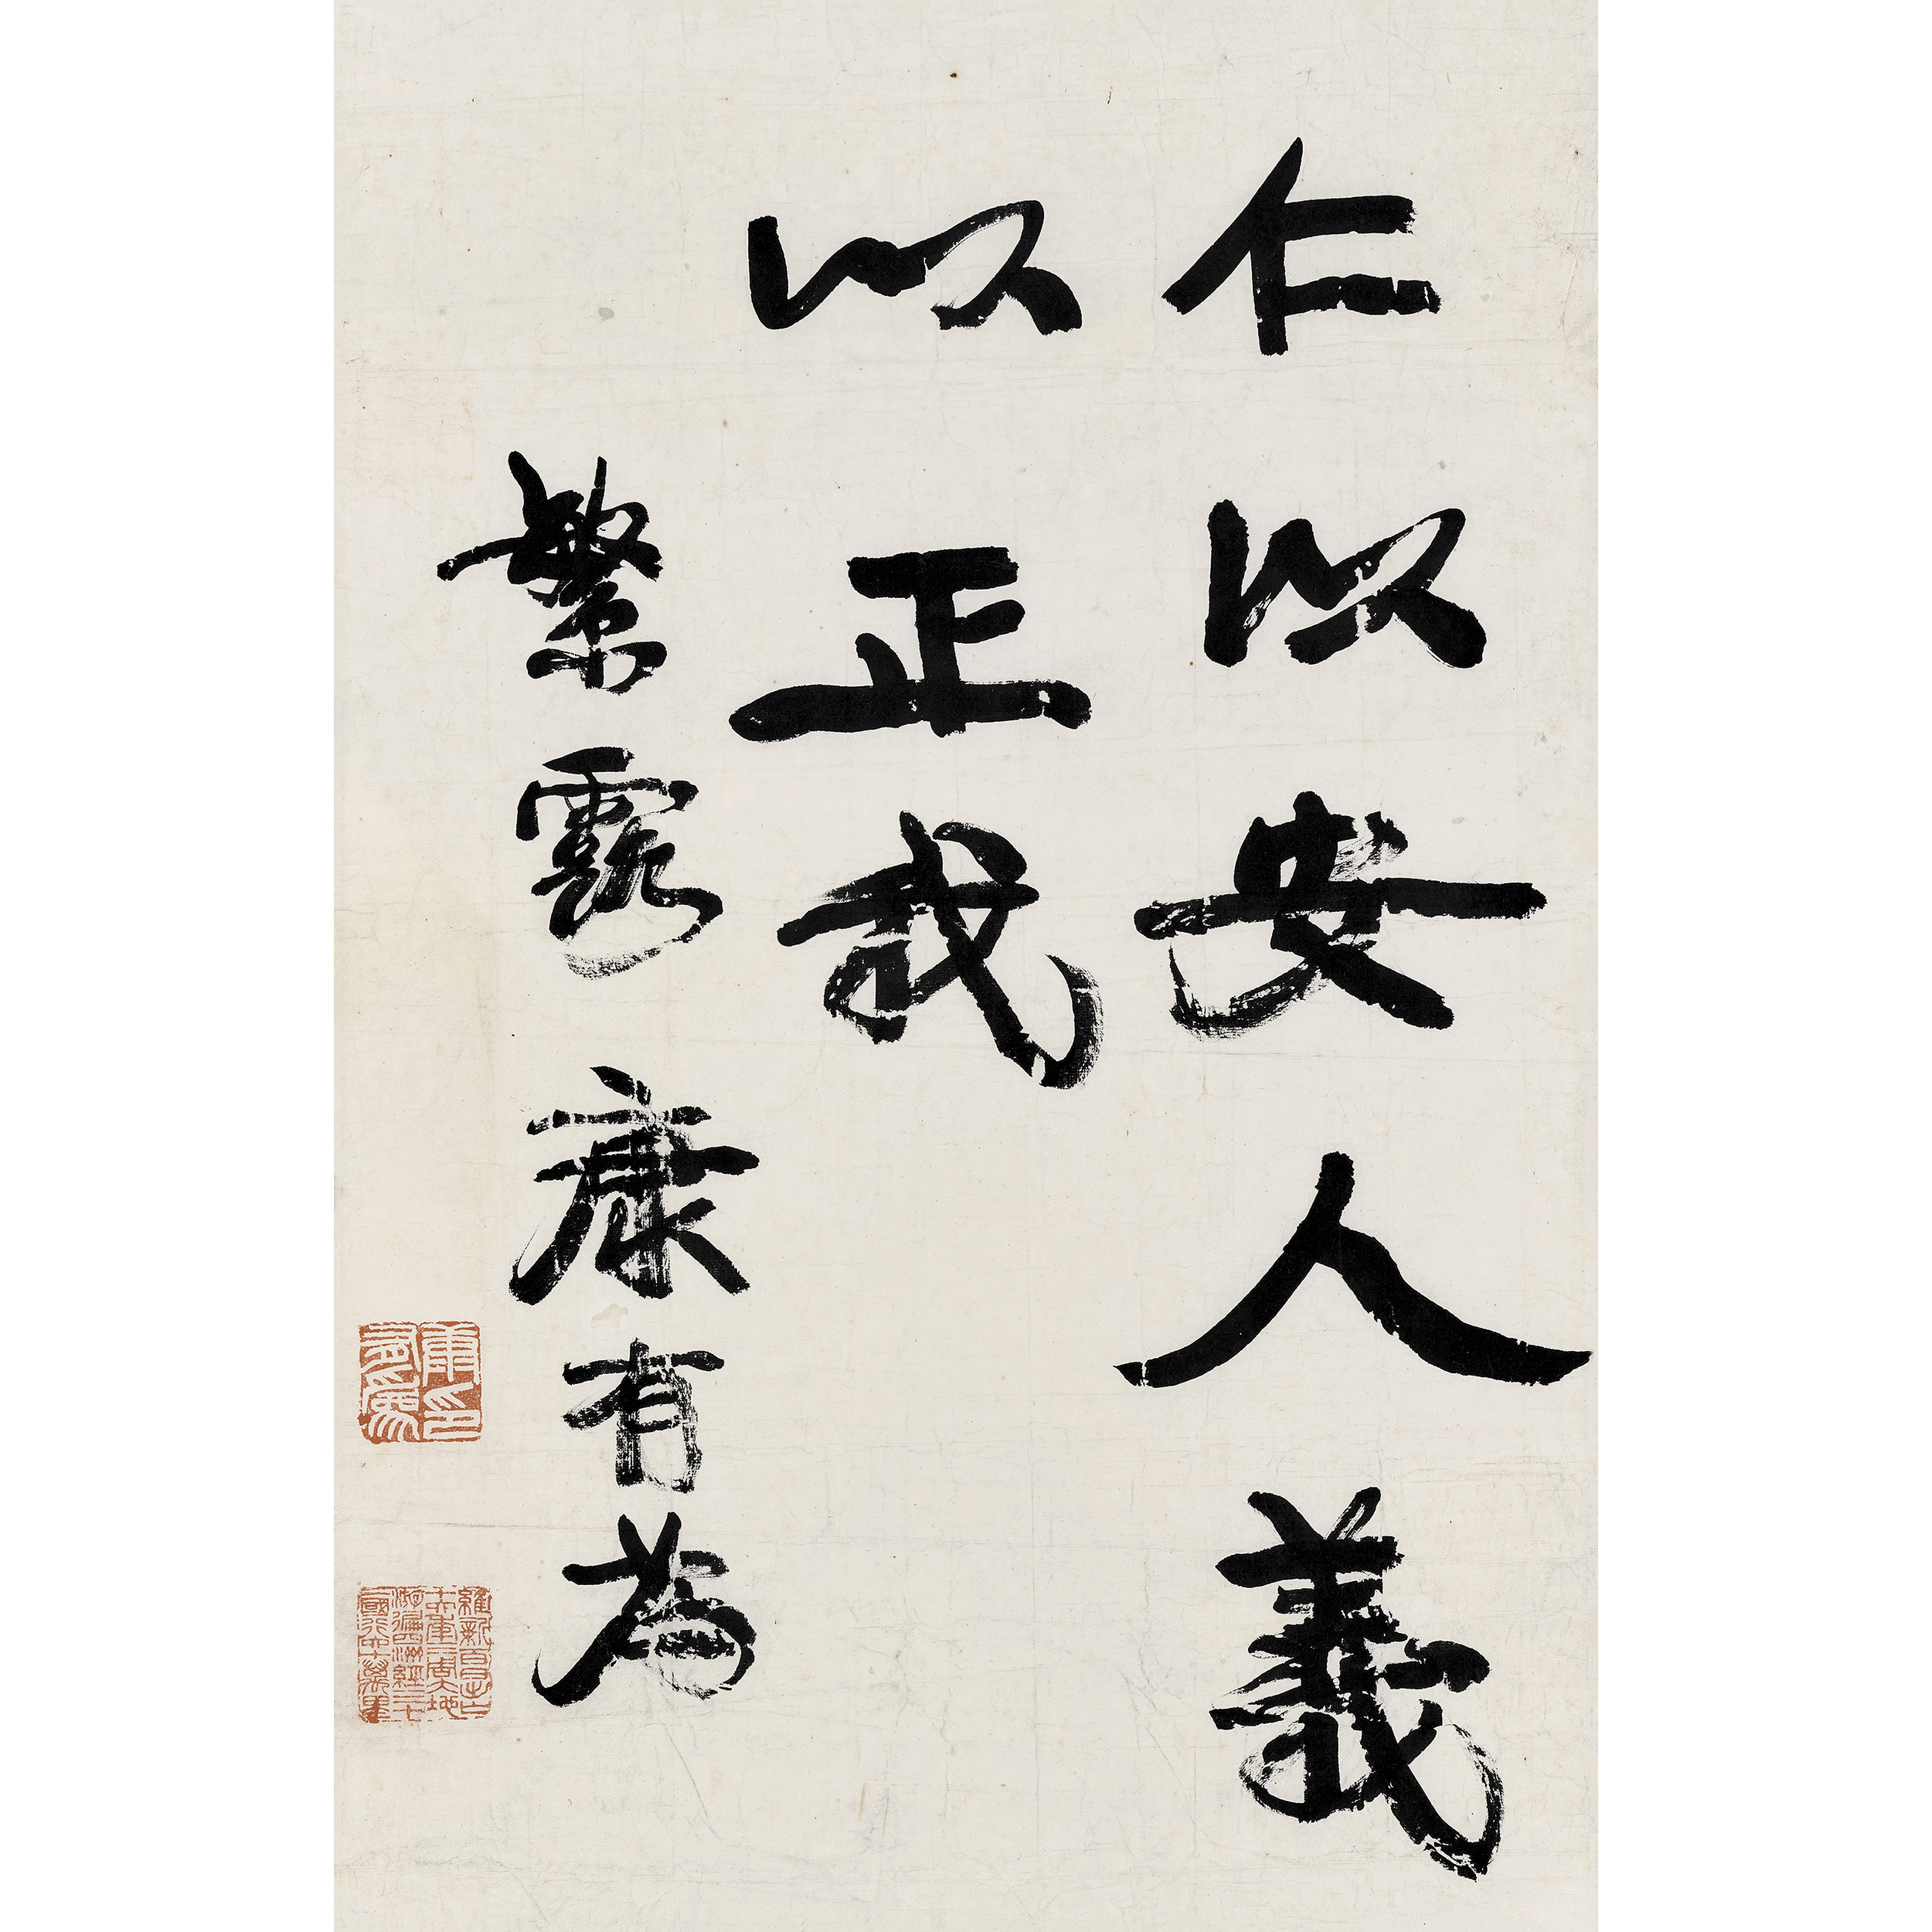 仁以安人義
以正我
繁露 康有為
康有為印
維新百日出亡十六年三周大地游遍四洲經三十一國行六十萬里